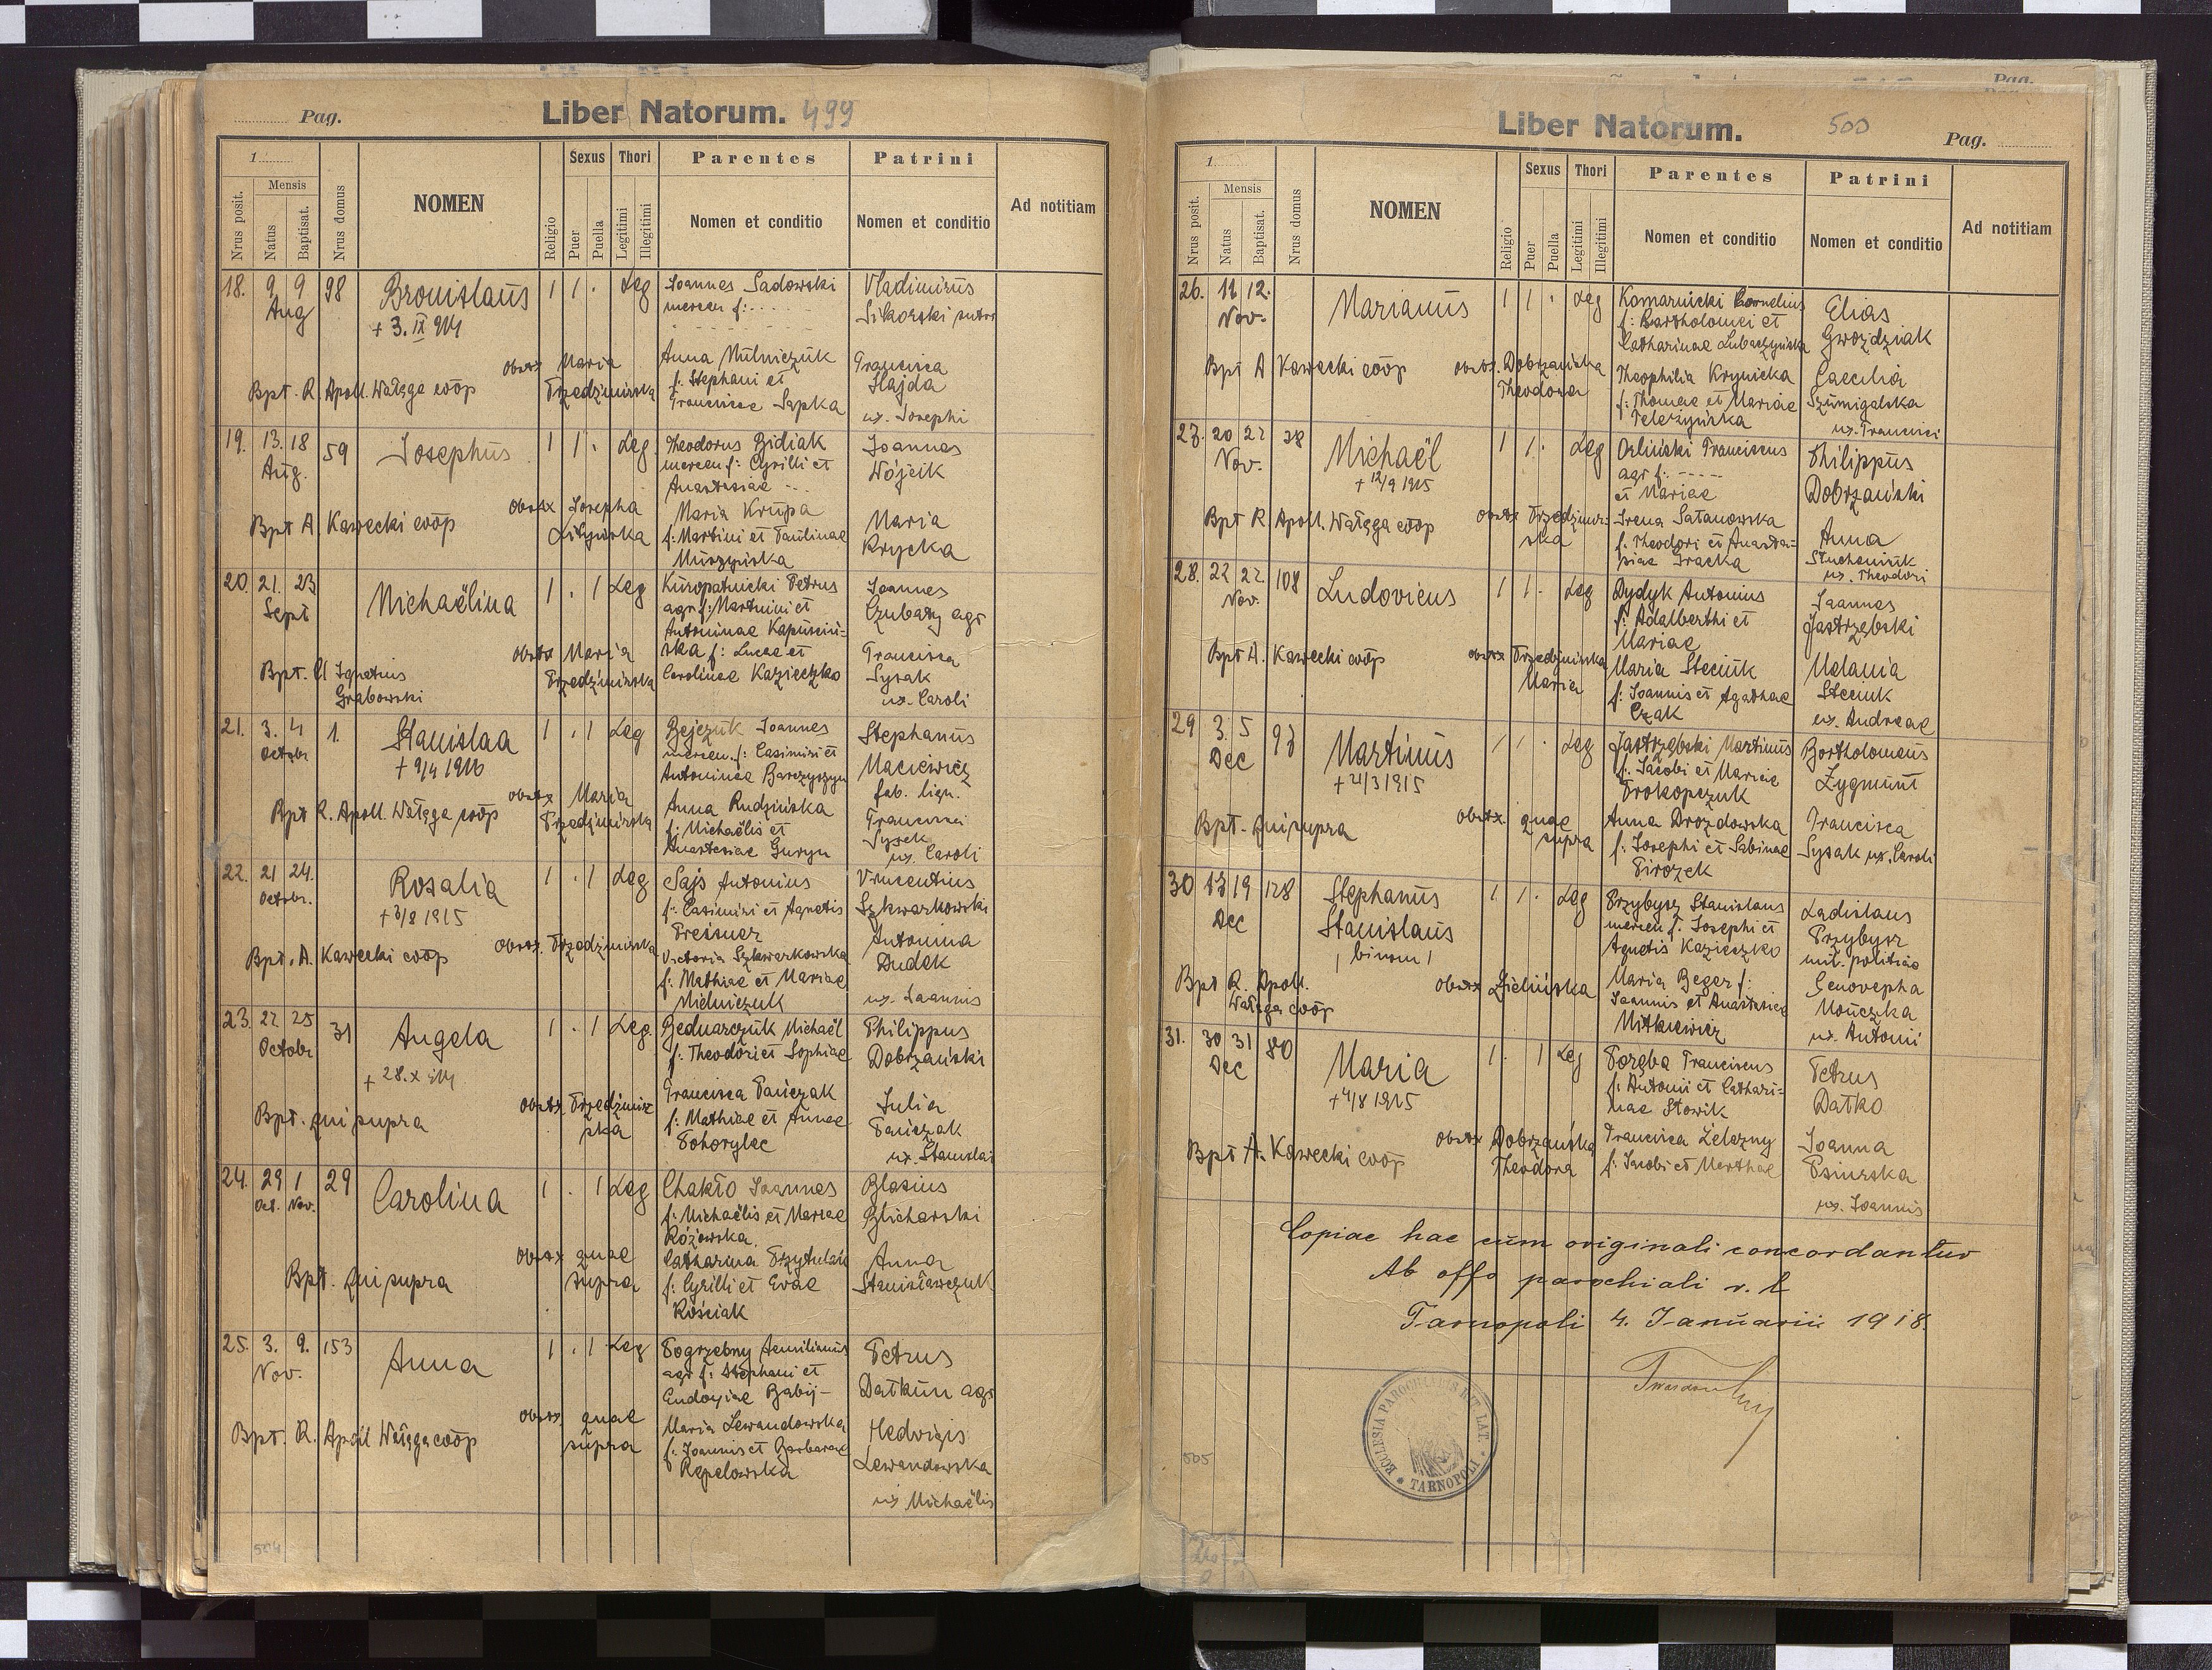 Pag.
Liber Natorum. 499
1
Nrus posit.
Mensis
Natus
Baptisat.
Nrus domus
NOMEN
Religio
Sexus
Puer
Puella
Thori
Legitimi
Illegitimi
Parentes
Nomen et conditio
Patrini
Nomen et conditio
Ad notitiam
18. 9 9 98 Bronislaus 1 1 . Leg Joannes Sadowski Vladimirus
Aug + 3. IX 914 mercen f: Sikorski sutor
obstx Maria Anna Milniczuk Francisca
Bpt. R. Apoll. Wałęga coop Trzedzimirska f: Stephani et Hajda
Franciscae Sapka ux. Josephi
19. 13. 18 59 Josephus 1 1 . Leg Theodorus Bidiak Joannes
Aug. mercen f: Cyrilli et Wójcik
Anastasiae
obstx Josepha Maria Krupa Maria
Bpt A Kawecki coop f: Martini et Paulinae Krycka
20. 21. 23 Michaëlina 1 . 1 Leg Kuropatnicki Petrus Joannes
Sept agr f: Martini et Czubaty agr
Antoninae Kapuściń-
obstx Maria ska f: Lucae et Francisca
Bpt. Cl Ignatius Trzedzimirska Carolinae Kazieczko Sysak
Grabowski ux. Caroli
21. 3. 4 1. Stanislaa 1 . 1 Leg Bejczuk Joannes Stephanus
Octobr + 9/4 1916 mercen. f: Casimiri et Maciewicz
Antoninae Barczyszyn fab. lign.
obstx Maria Anna Rudzińska
Bpt R. Apoll. Wałęga coop Trzedzimirska f: Michaëlis et
Anastasiae Guryn ux. Caroli
22. 21 24. Rosalia 1 . 1 Leg Sajs Antonius Vincentius
Octobr. + 3/8 1915 f: Casimiri et Agnetis Szkwarkowski
Preisner Antonina
Bpt. A. Kawecki coop obstx. Trzedzimirska Victoria Szkwarkowska Dudek
f: Mathiae et Mariae
Mielniczuk ux. Joannis
23. 22 25 31 Angela 1 . 1 Leg. Bednarczuk Michaël Philippus
Octobr f: Theodori et Sophiae Dobrzański
+ 28. X 914
Francisca Pańczak Julia
Bpt. qui supra obstx Trzedzimir f: Mathiae et Annae Pańczak
ska Pohorylec ux. Stanislai
24. 29 1 29 Carolina 1 . 1 Leg Chakto Joannes Blasius
Oct. Nov. f: Michaëlis et Mariae Blicharski
Różowska
obstx quae Catharina Przytulak Anna
Bpt. qui supra supra f: Cyrilli et Evae Stanisławczuk
Kościak
25. 3. 9. 153 Anna 1 . 1 Leg Pogrzebny Aemilianus Petrus
Nov. agr f: Stephani et Datkun agr
Eudoxiae Babij-
obstx. quae Maria Lewandowska Hedvigis
Bpt. R. Apoll Wałęga coop supra f: Joannis et Barbarae Lewandowska
Repelowska
ux Michaëlis
Liber Natorum. 500
Pag.
1
Nrus posit.
Mensis
Natus
Baptisat.
Nrus domus
NOMEN
Religio
Sexus
Puer
Puella
Thori
Legitimi
Illegitimi
Parentes
Nomen et conditio
Patrini
Nomen et conditio
Ad notitiam
26. 11 12. Marianus 1 1 . Leg Komarnicki Cornelius Elias
Nov. f: Bartholomei et Gwoździak
Catharinae Lubaczyńska
Bpt A Kawecki coop obstx. Dobrzańska Theophilia Krynicka Caecilia
Theodora f: Thomae et Mariae Szumigalska
ux. Francisci
27. 20 22 38 Michaël 1 1 . Leg Orliński Franciscus Philippus
Nov. + 12/9 1915 agr f: Dobrzański
et Mariae
Bpt R. Apoll. Wałęga coop obstx Trzedzimir- Irena Satanowska Anna
ska f: Theodori et Anasta-
siae ux. Theodori
28. 22 22. 108 Ludovicus 1 1 . Leg Dydyk Antonius Joannes
Nov. f: Adalberthi et Jastrzębski
Mariae
Bpt A. Kawecki coop obstx Trzedzimirska Maria Steciuk Melania
Maria f: Joannis et Agathae Steciuk
Czak ux. Andreae
29 3. 5 97 Martinus 1 1 . Leg Jastrzębski Martinus Bartholomeus
Dec + 21/3 1915 f: Jacobi et Mariae Zygmunt
Prokopczuk
obstx. quae Anna Drozdowska Francisca
Bpt. qui supra supra f: Josephi et Sabinae Sysak ux. Caroli
Pirozek
30 17 19 128 Stephanus 1 1 . Leg Przybysz Stanislaus Ladislaus
Dec Stanislaus mercen f. Josephi et Przybysz
/ binom / Agnetis Kazieczko mil. politiae
Bpt R. Apoll. obstx Zielińska Maria Beger f: Genovepha
Wałęga coop Joannis et Anastasiae Mończka
Mitkiewicz ux. Antonii
31. 30 31 80 Maria 1 . 1 Leg Poręba Franciscus Petrus
Dec + 4/8 1915 f: Antonii et Cathari- Datko
nae Słowik
Bpt A. Kawecki coop obstx Dobrzańska Francisca Żelazny Joanna
Theodora f: Jacobi et Marthae Psiurska
ux. Joannis
Copiae hae cum originali concordantur
Ab offo parochiali r. l
Tarnopoli 4. Januarii 1918.
ECCLESIA PAROCHIALIS RIT. LAT. TARNOPOLI
505